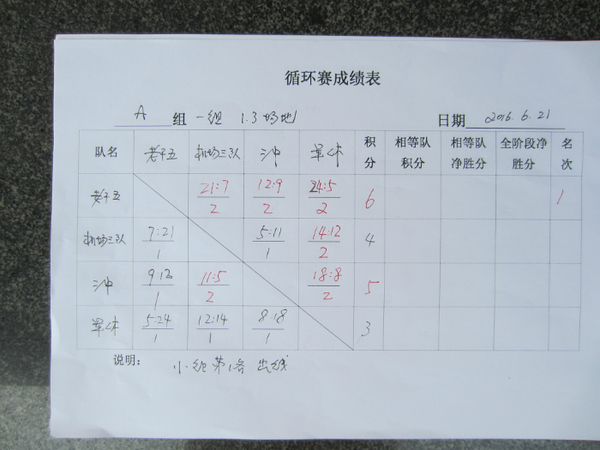 循环赛成绩表
A 组 一组 1.3场地 日期 2016.6.21
队名 老干五 机场三队 三中 军休 积分 相等队积分 相等队净胜分 全阶段净胜分 名次
老干五 21:7/2 12:9/2 24:5/2 6 1
机场三队 7:21/1 5:11/1 14:12/2 4
三中 9:12/1 11:5/2 18:8/2 5
军休 5:24/1 12:14/1 8:18/1 3
说明: 小组第1名出线